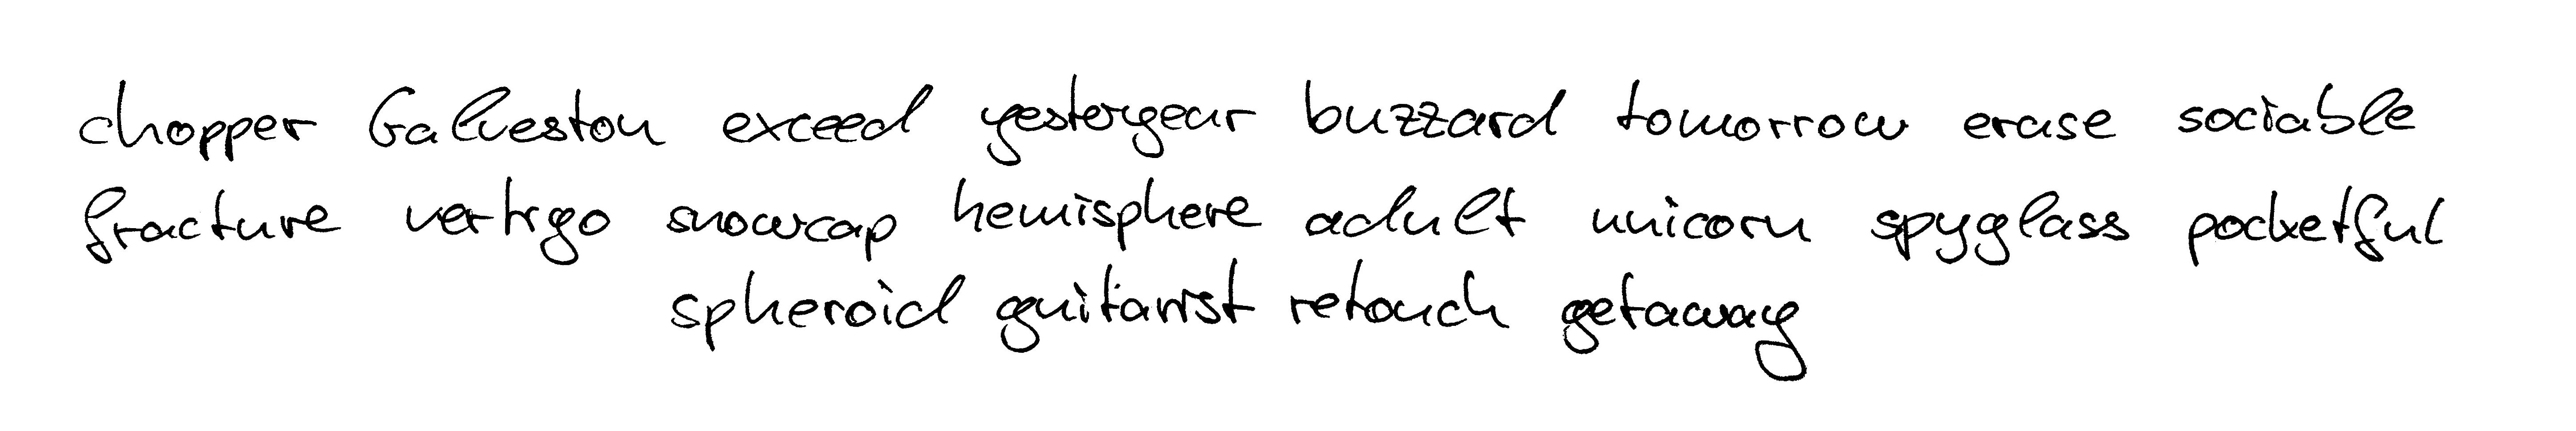 chopper Galveston exceed yesteryear buzzard tomorrow erase sociable
fracture vertigo snowcap hemisphere adult unicorn spyglass pocketful
spheroid guitarist retouch getaway